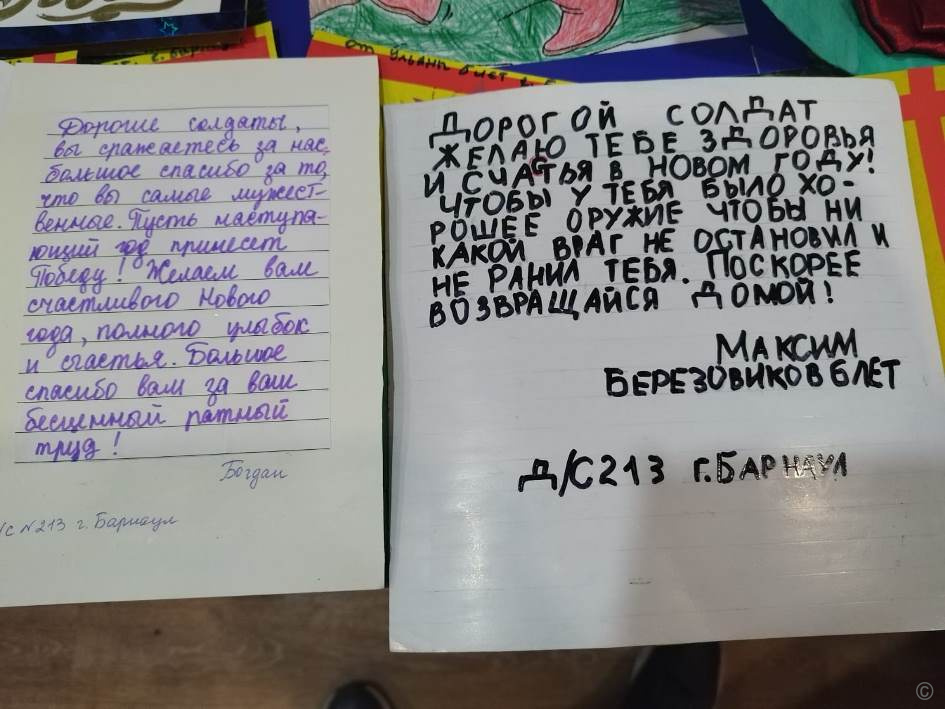 от Ульяны 6 лет
Дорогие солдаты,
вы сражаетесь за нас,
большое спасибо за то,
что вы самые мужест-
венные. Пусть наступа-
ющий год принесет
Победу! Желаем вам
счастливого Нового
года, полного улыбок
и счастья. Большое
спасибо вам за ваш
бесценный ратный
труд!
Богдан
/с №213 г. Барнаул
ДОРОГОЙ СОЛДАТ
ЖЕЛАЮ ТЕБЕ ЗДОРОВЬЯ
И СЧАСТЬЯ В НОВОМ ГОДУ!
ЧТОБЫ У ТЕБЯ БЫЛО ХО-
РОШЕЕ ОРУЖИЕ ЧТОБЫ НИ
КАКОЙ ВРАГ НЕ ОСТАНОВИЛ И
НЕ РАНИЛ ТЕБЯ. ПОСКОРЕЕ
ВОЗВРАЩАЙСЯ ДОМОЙ!
МАКСИМ
БЕРЕЗОВИКОВ 6 ЛЕТ
Д/С 213 Г. БАРНАУЛ
©